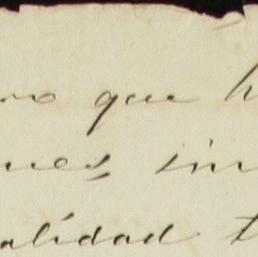 ro que h
nes in
alidad t